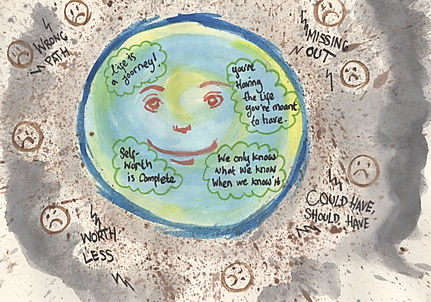 WRONG
PATH
MISSING
OUT
Life is
a journey!
you're
Having
the life
you're meant
to have.
Self-
Worth
is Complete
We only know
what we know
when we know it.
COULD HAVE,
SHOULD HAVE
WORTH
LESS